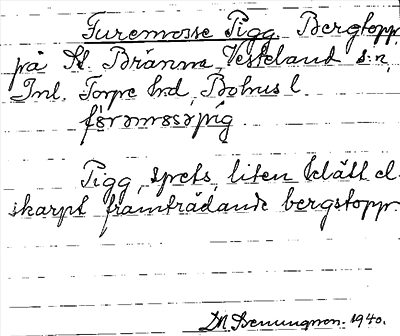 Furemosse Pigg. Bergtopp
på St. Bränna, Vesteland s:n,
Inl. Torpe hd, Bohus l.
fөrəmosəpig
Pigg, spets, liten klätt el.
skarpt framträdande bergstopp.
1940.